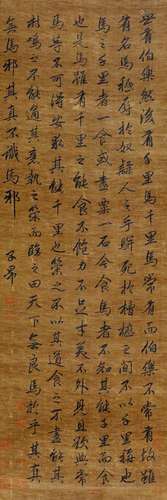 世有伯樂然後有千里馬千里馬常有而伯樂不常有故雖
有名馬秪辱於奴隸人之手駢死於槽櫪之間不以千里稱也
馬之千里者一食或盡粟一石今食馬者不知其能千里而食
也是馬雖有千里之能食不飽力不足才美不外見且欲與常
馬等不可得安求其能千里也策之不以其道食之不能盡其
材鳴之不能通其意執之策而臨之曰天下無良馬於乎其真
無馬邪其真不識馬邪
子昂